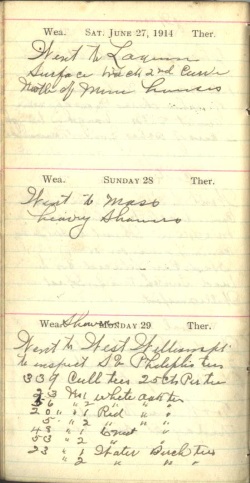 Wea. SAT. JUNE 27, 1914 Ther.
Went to Laquin
Surface track 2nd Curve
North of Mine houses
Wea. SUNDAY 28 Ther.
Went to Mass
heavy Showers
Wea. Show MONDAY 29 Ther.
Went to West Williamspt
to inspect ties
339 Cull ties 25 cts Per tie
23 No 1 white oak ties
" 2 " " "
20 " 1 Red " "
5 " 2 " " "
43 " 1
53 " 2 "
23 " 1 Water Birch ties
" 2 " " "